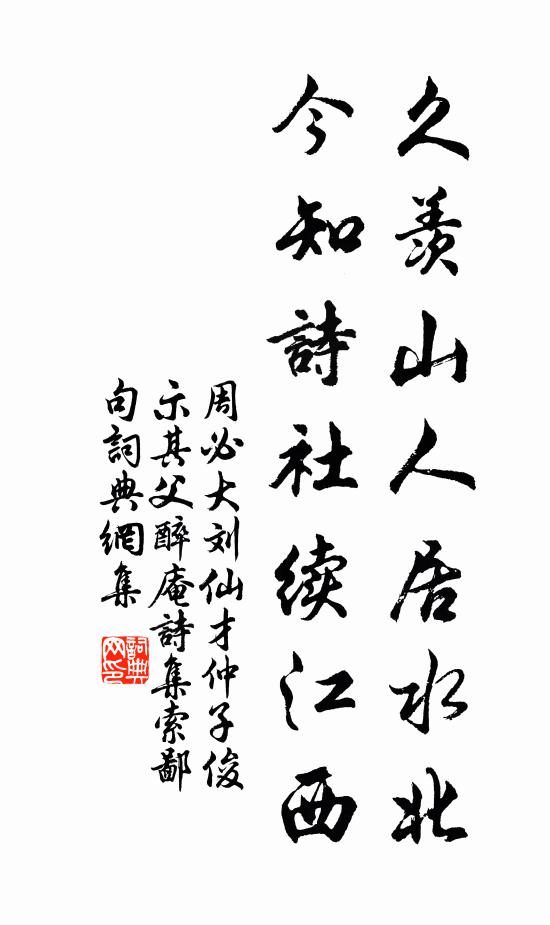 久羨山人居水北
今知詩社续江西
周必大刘仙才仲子俊
示其父醉庵詩集索鄙
句詞典網集
詞典網印